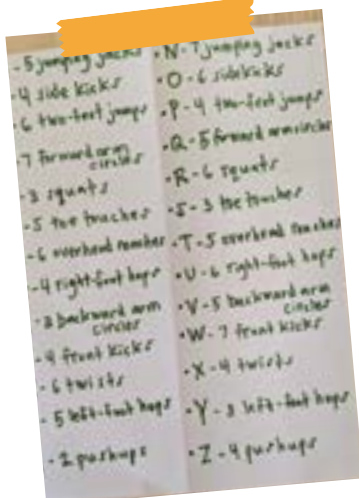 - 5 jumping jacks
- 4 side kicks
- 6 two-feet jumps
- 7 forward arm
circles
- 3 squats
- 5 toe touches
- 6 overhead reaches
- 4 right-foot hops
- 3 backward arm
circles
- 4 front kicks
- 6 twists
- 5 left-foot hops
- 2 pushups
• N - 7 jumping jacks
• O - 6 sidekicks
• P - 4 two-feet jumps
• Q - 5 forward arm circles
• R - 6 squats
• S - 3 toe touches
• T - 5 overhead reaches
• U - 6 right-foot hops
• V - 5 backward arm
circles
• W - 7 front kicks
• X - 4 twists
• Y - 3 left-foot hops
• Z - 4 pushups